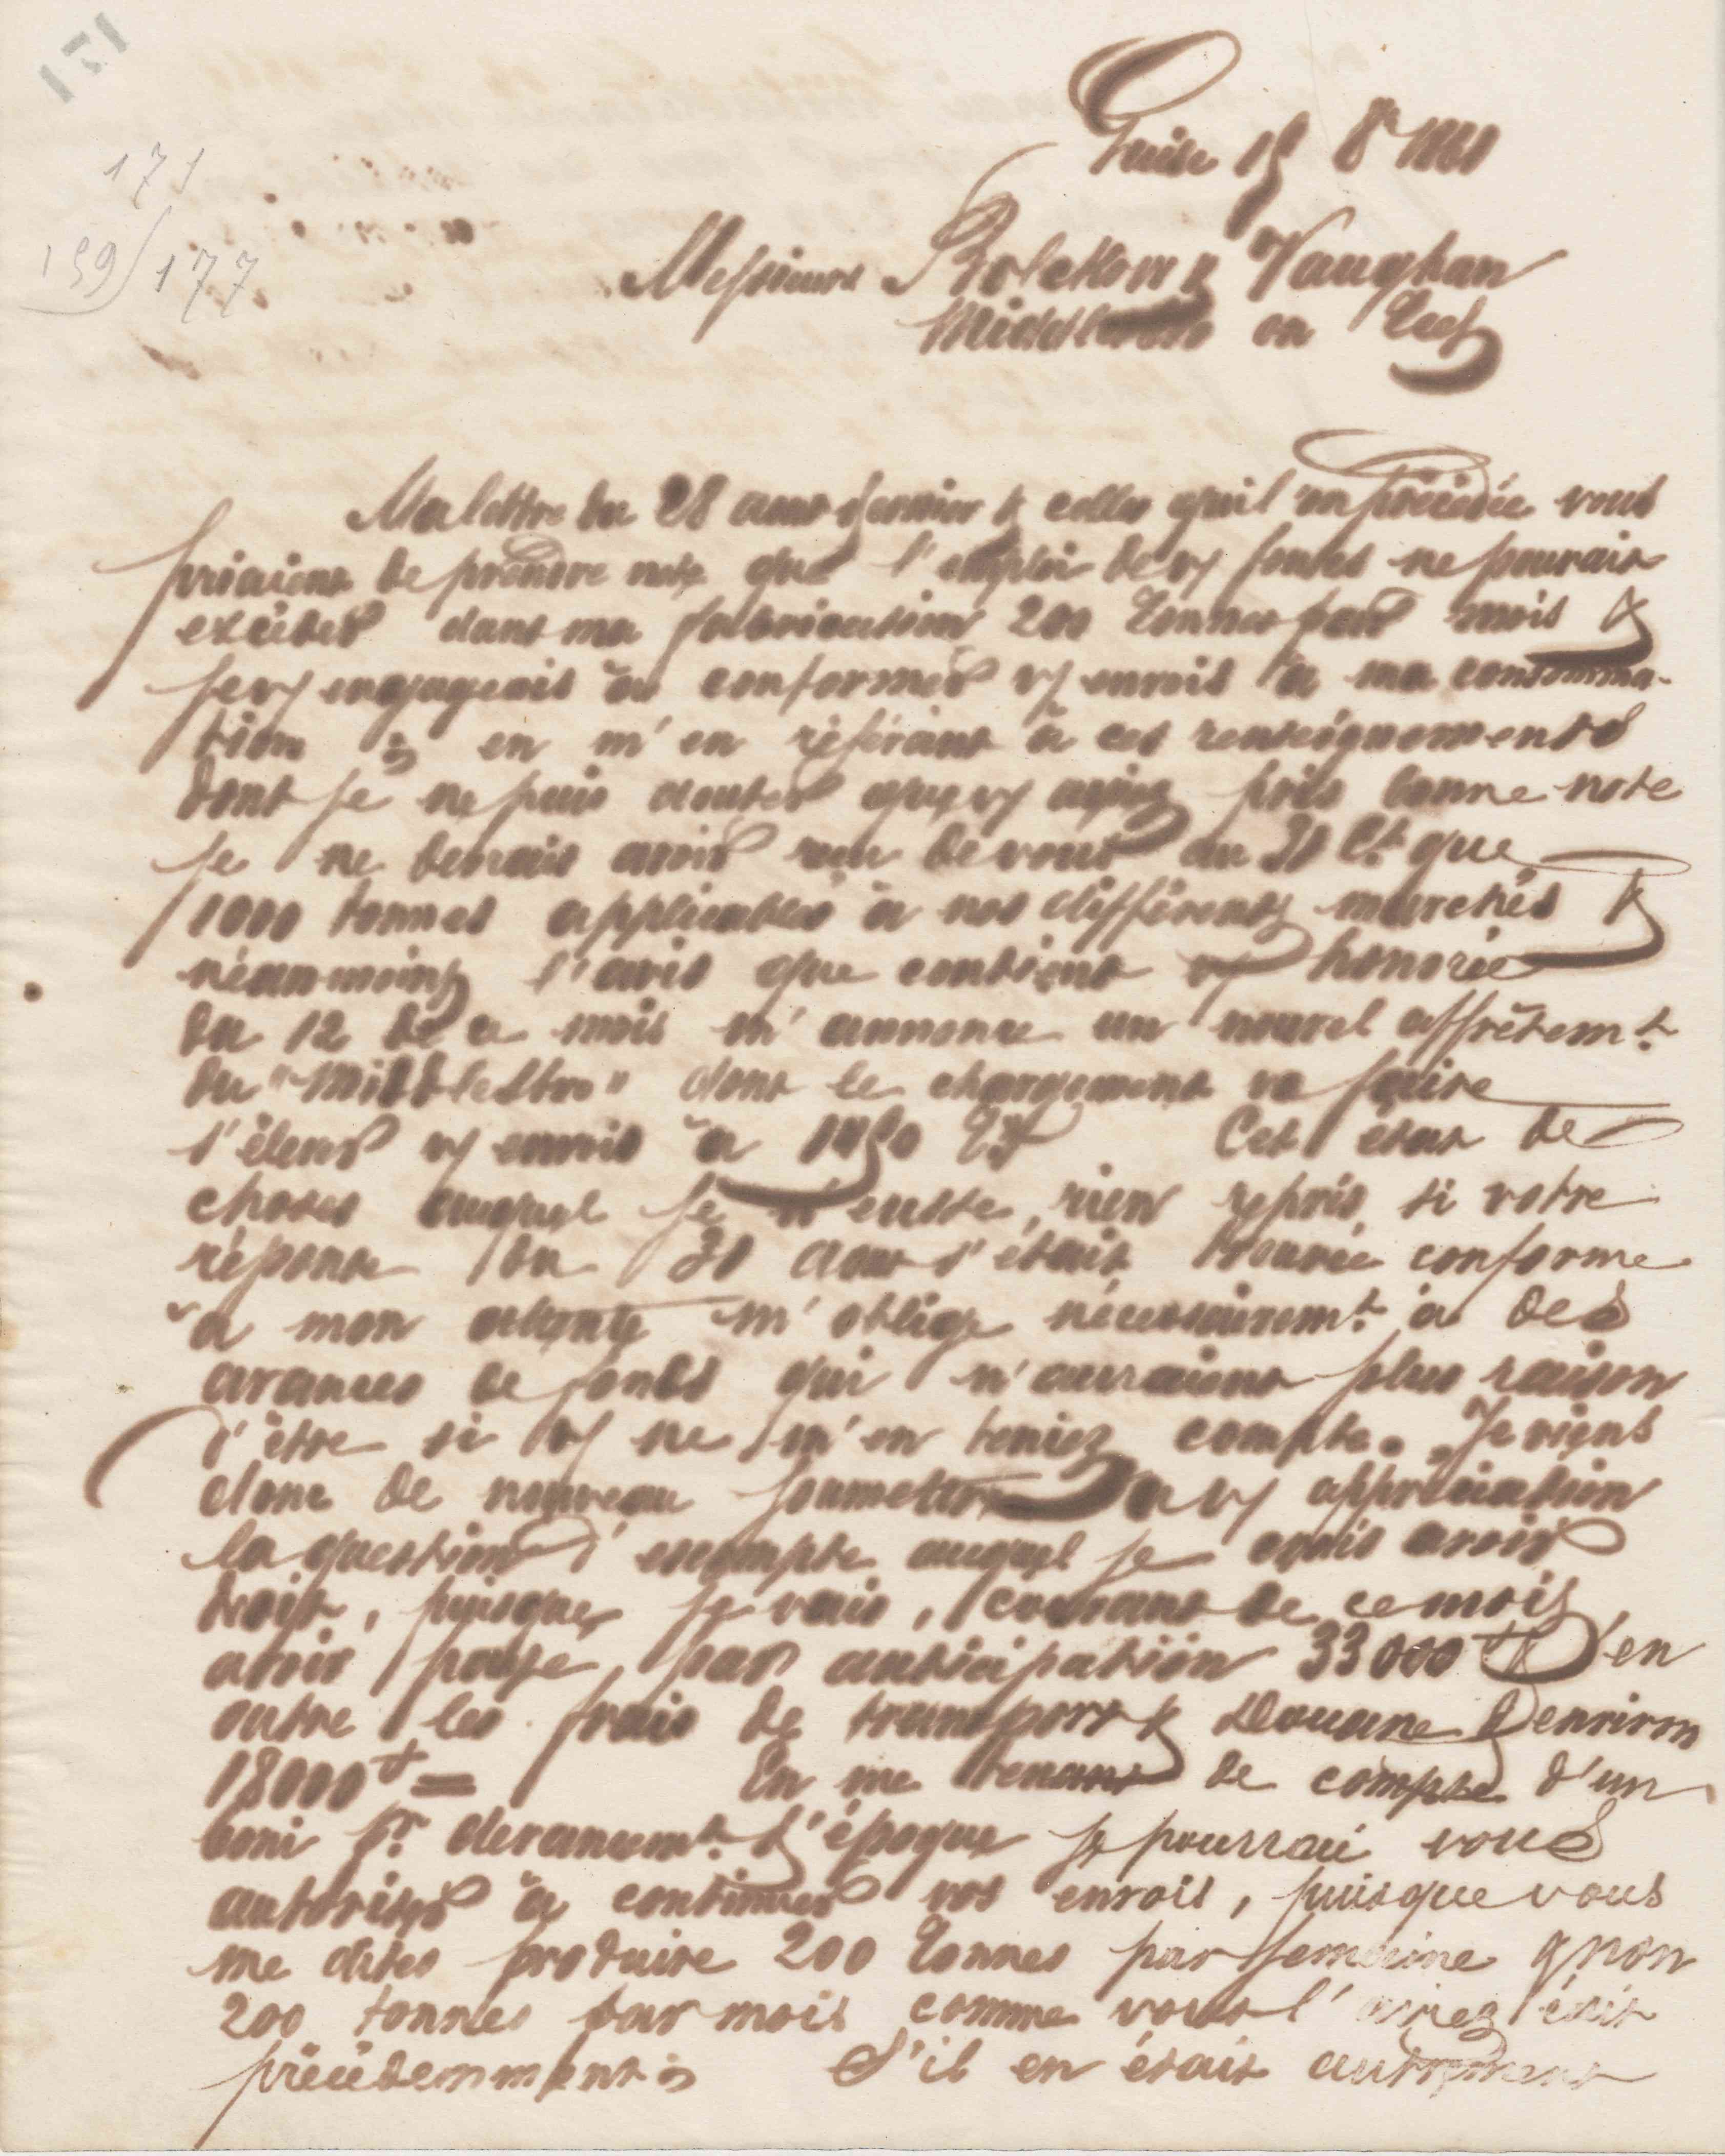 171
171
159/177
Guise 15 8re 1860
Messieurs Bolckow & Vaughan
Middlesbro on Tees
Ma lettre du 28 aout dernier & celles qui l'on précédée vous
priaient de prendre note que l'emploi de vs fontes ne pourrait
excéder dans ma fabrication 200 Tonnes par mois &
je vs engageais à conformer vs envois à ma consomma-
tion; en m'en référant à ces renseignements
dont je ne puis douter que vs ayiez pris bonne note
je ne devrais avoir reçu de vous au 31 Ct que
1000 tonnes applicables à nos différents marchés &
néanmoins l'avis que contient vs honorée
du 12 de ce mois m'annonce un nouvel affrêtemt
du "Middlesbro" dont le chargement va faire
s'élever vs envois à Tx Cet état de
choses auquel je n'eusse rien repris, si votre
réponse du 31 aout s'était trouvée conforme
à mon attente m'oblige nécessairemt à des
avances de fonds qui n'auraient plus raison
d'être si vs ne m'en teniez compte. Je viens
donc de nouveau soumettre à vs appréciation
la question d'escompte auquel je crois avoir
droit, puisque je vais, courant de ce mois,
avoir payé, par anticipation 33000 en
outre les frais de transport & Douane d'environ
18000 f = En me tenant de compte d'un
boni pr devancemt d'époque je pourrai vous
autoriser à continuer vos envois, puisque vous
me dites produire 200 Tonnes par semaine & non
200 tonnes par mois comme vous l'aviez écrit
précédemment; S'il en était autrement